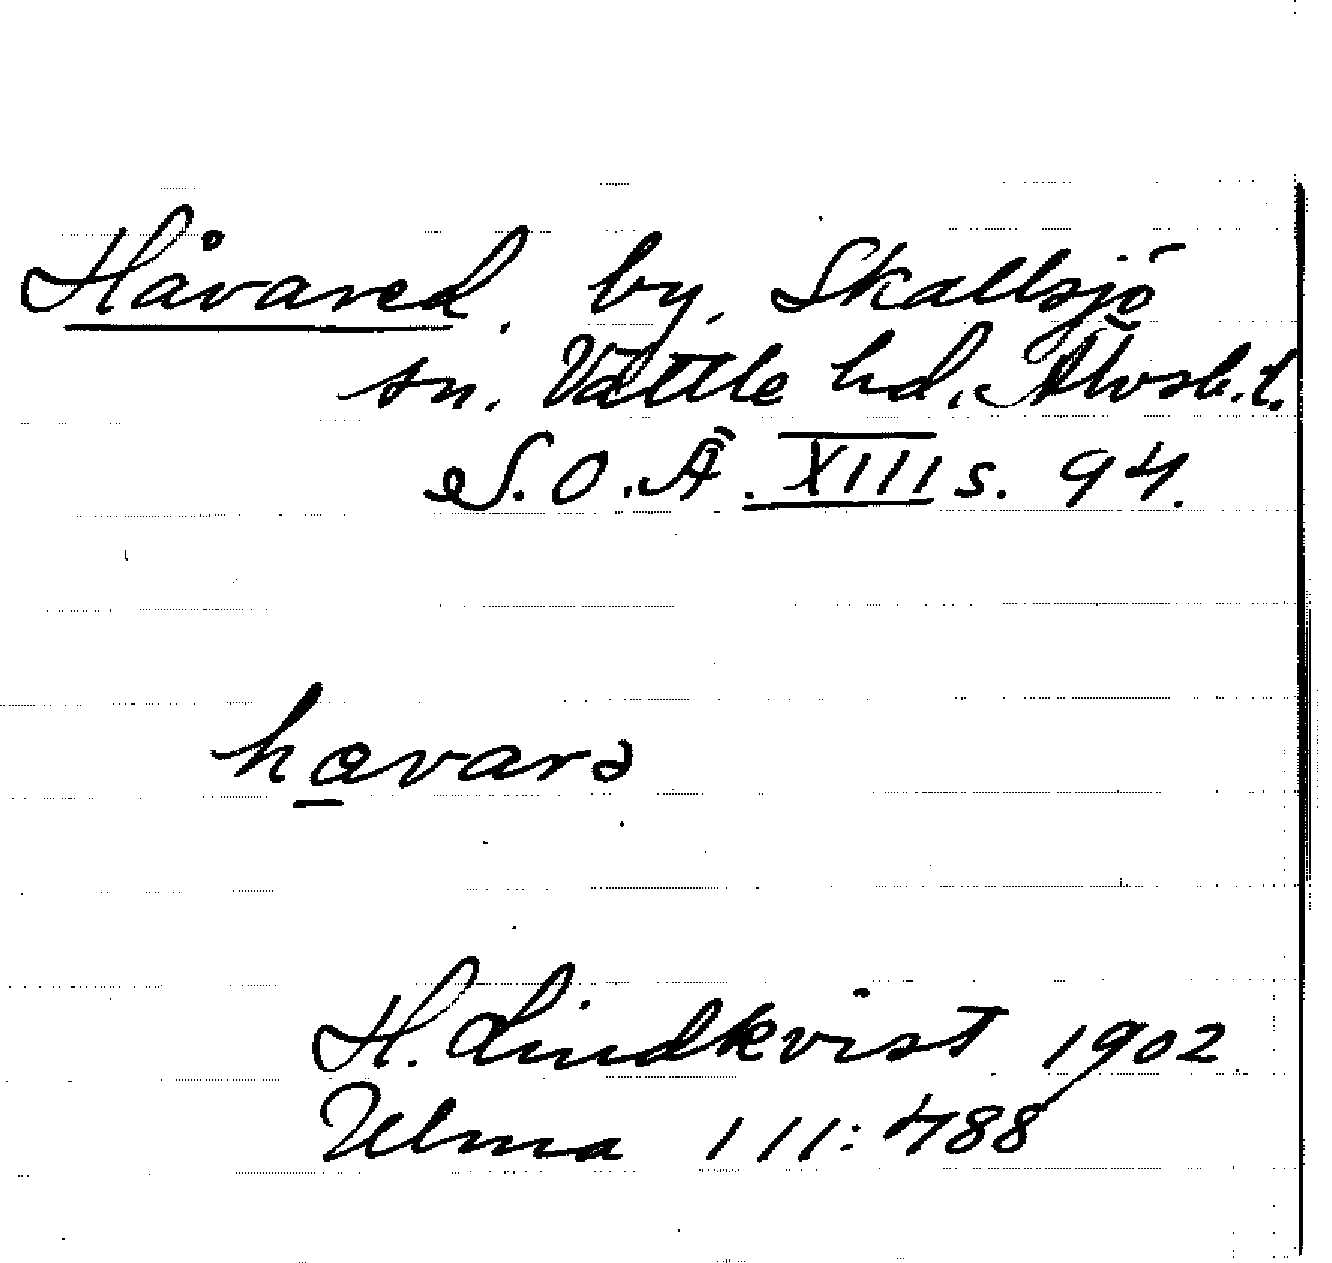 Håvared, by, Skallsjö
sn. Vättle hd, Älvsb. l.
S.O.Ä. XIII s. 94.
håvarə
H. Lindkvist 1902
Ulma 111:488